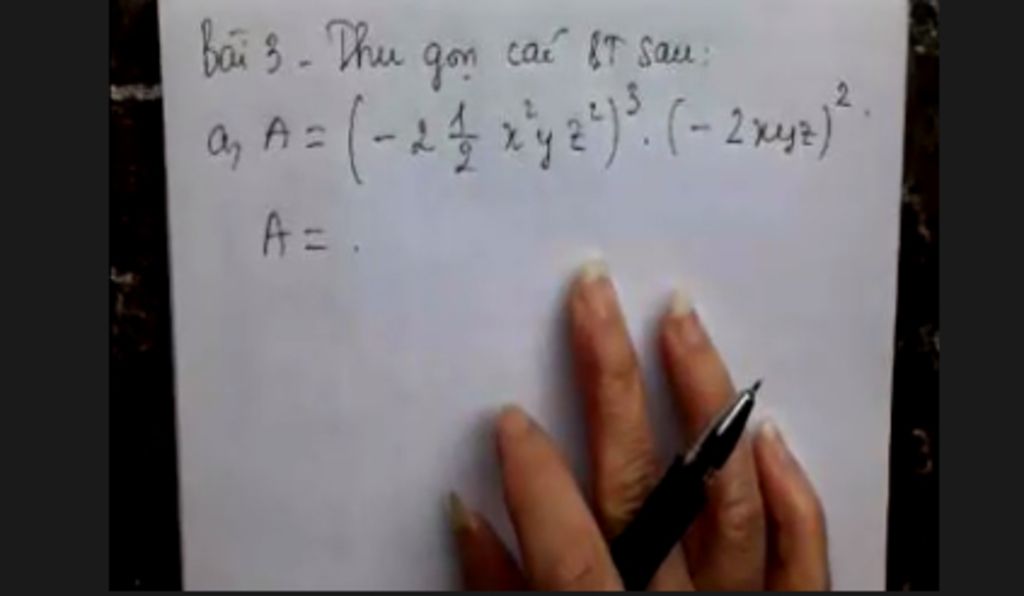 Bài 3 - Thu gọn các BT sau:
a, A = (- 2 1/2 x²y z²)³ . (- 2xyz)² .
A = .